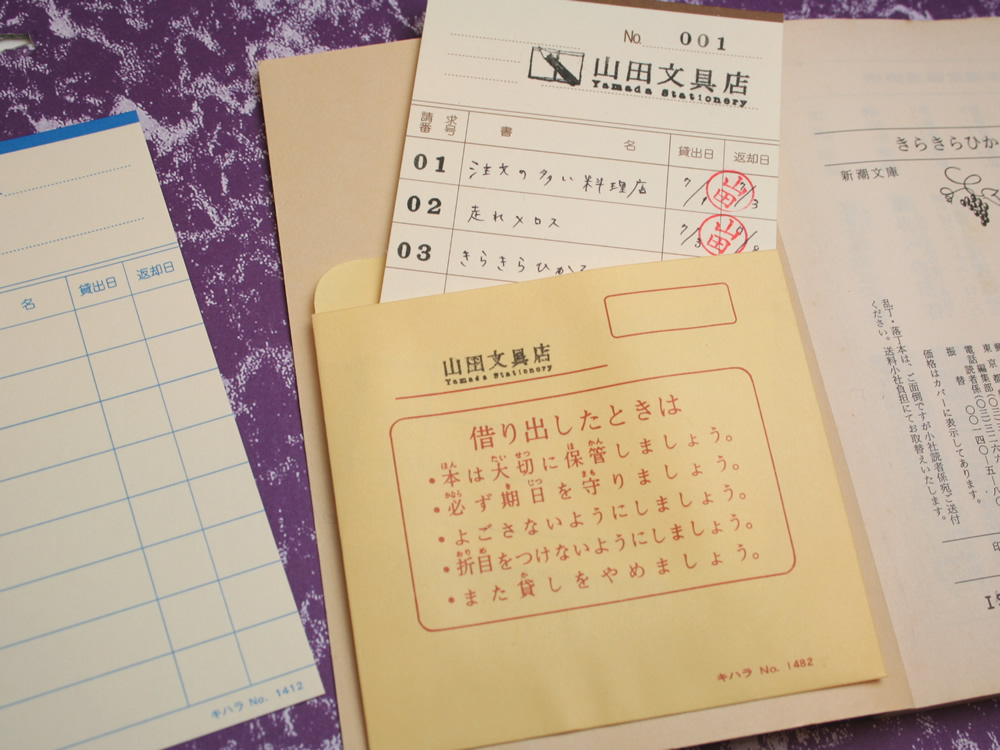 No. 001
山田文具店
Yamada Stationery
請求番号 書名 貸出日 返却日
01 注文の多い料理店 7/1 7/3
山田
02 走れメロス 7/3
山田
03 きらきらひかる
山田文具店
Yamada Stationery
借り出したときは
・本は大切に保管しましょう。
・必ず期日を守りましょう。
・よごさないようにしましょう。
・折目をつけないようにしましょう。
・また貸しをやめましょう。
キハラ No. 1482
名 貸出日 返却日
キハラ No. 1412
きらきらひか
新潮文庫
乱丁・落丁本は、ご面倒ですが小社読者係宛ご送付
ください。送料小社負担にてお取替えいたします。
価格はカバーに表示してあります。
振替 〇〇一四〇―五―八〇
電話
編集部(〇三)三
読者係(〇三)三二六六
東京都
印